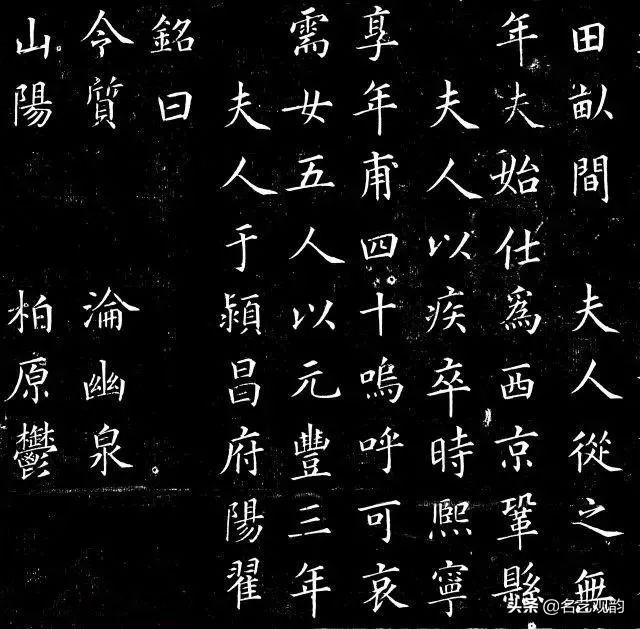 田畝間　夫人從之無
年夫始仕爲西京鞏縣
夫人以疾卒時熙寧
享年甫四十嗚呼可哀
需女五人以元豐三年
夫人于潁昌府陽翟
銘曰
令質　淪幽泉
山陽　柏原鬱
头条 @名艺观韵